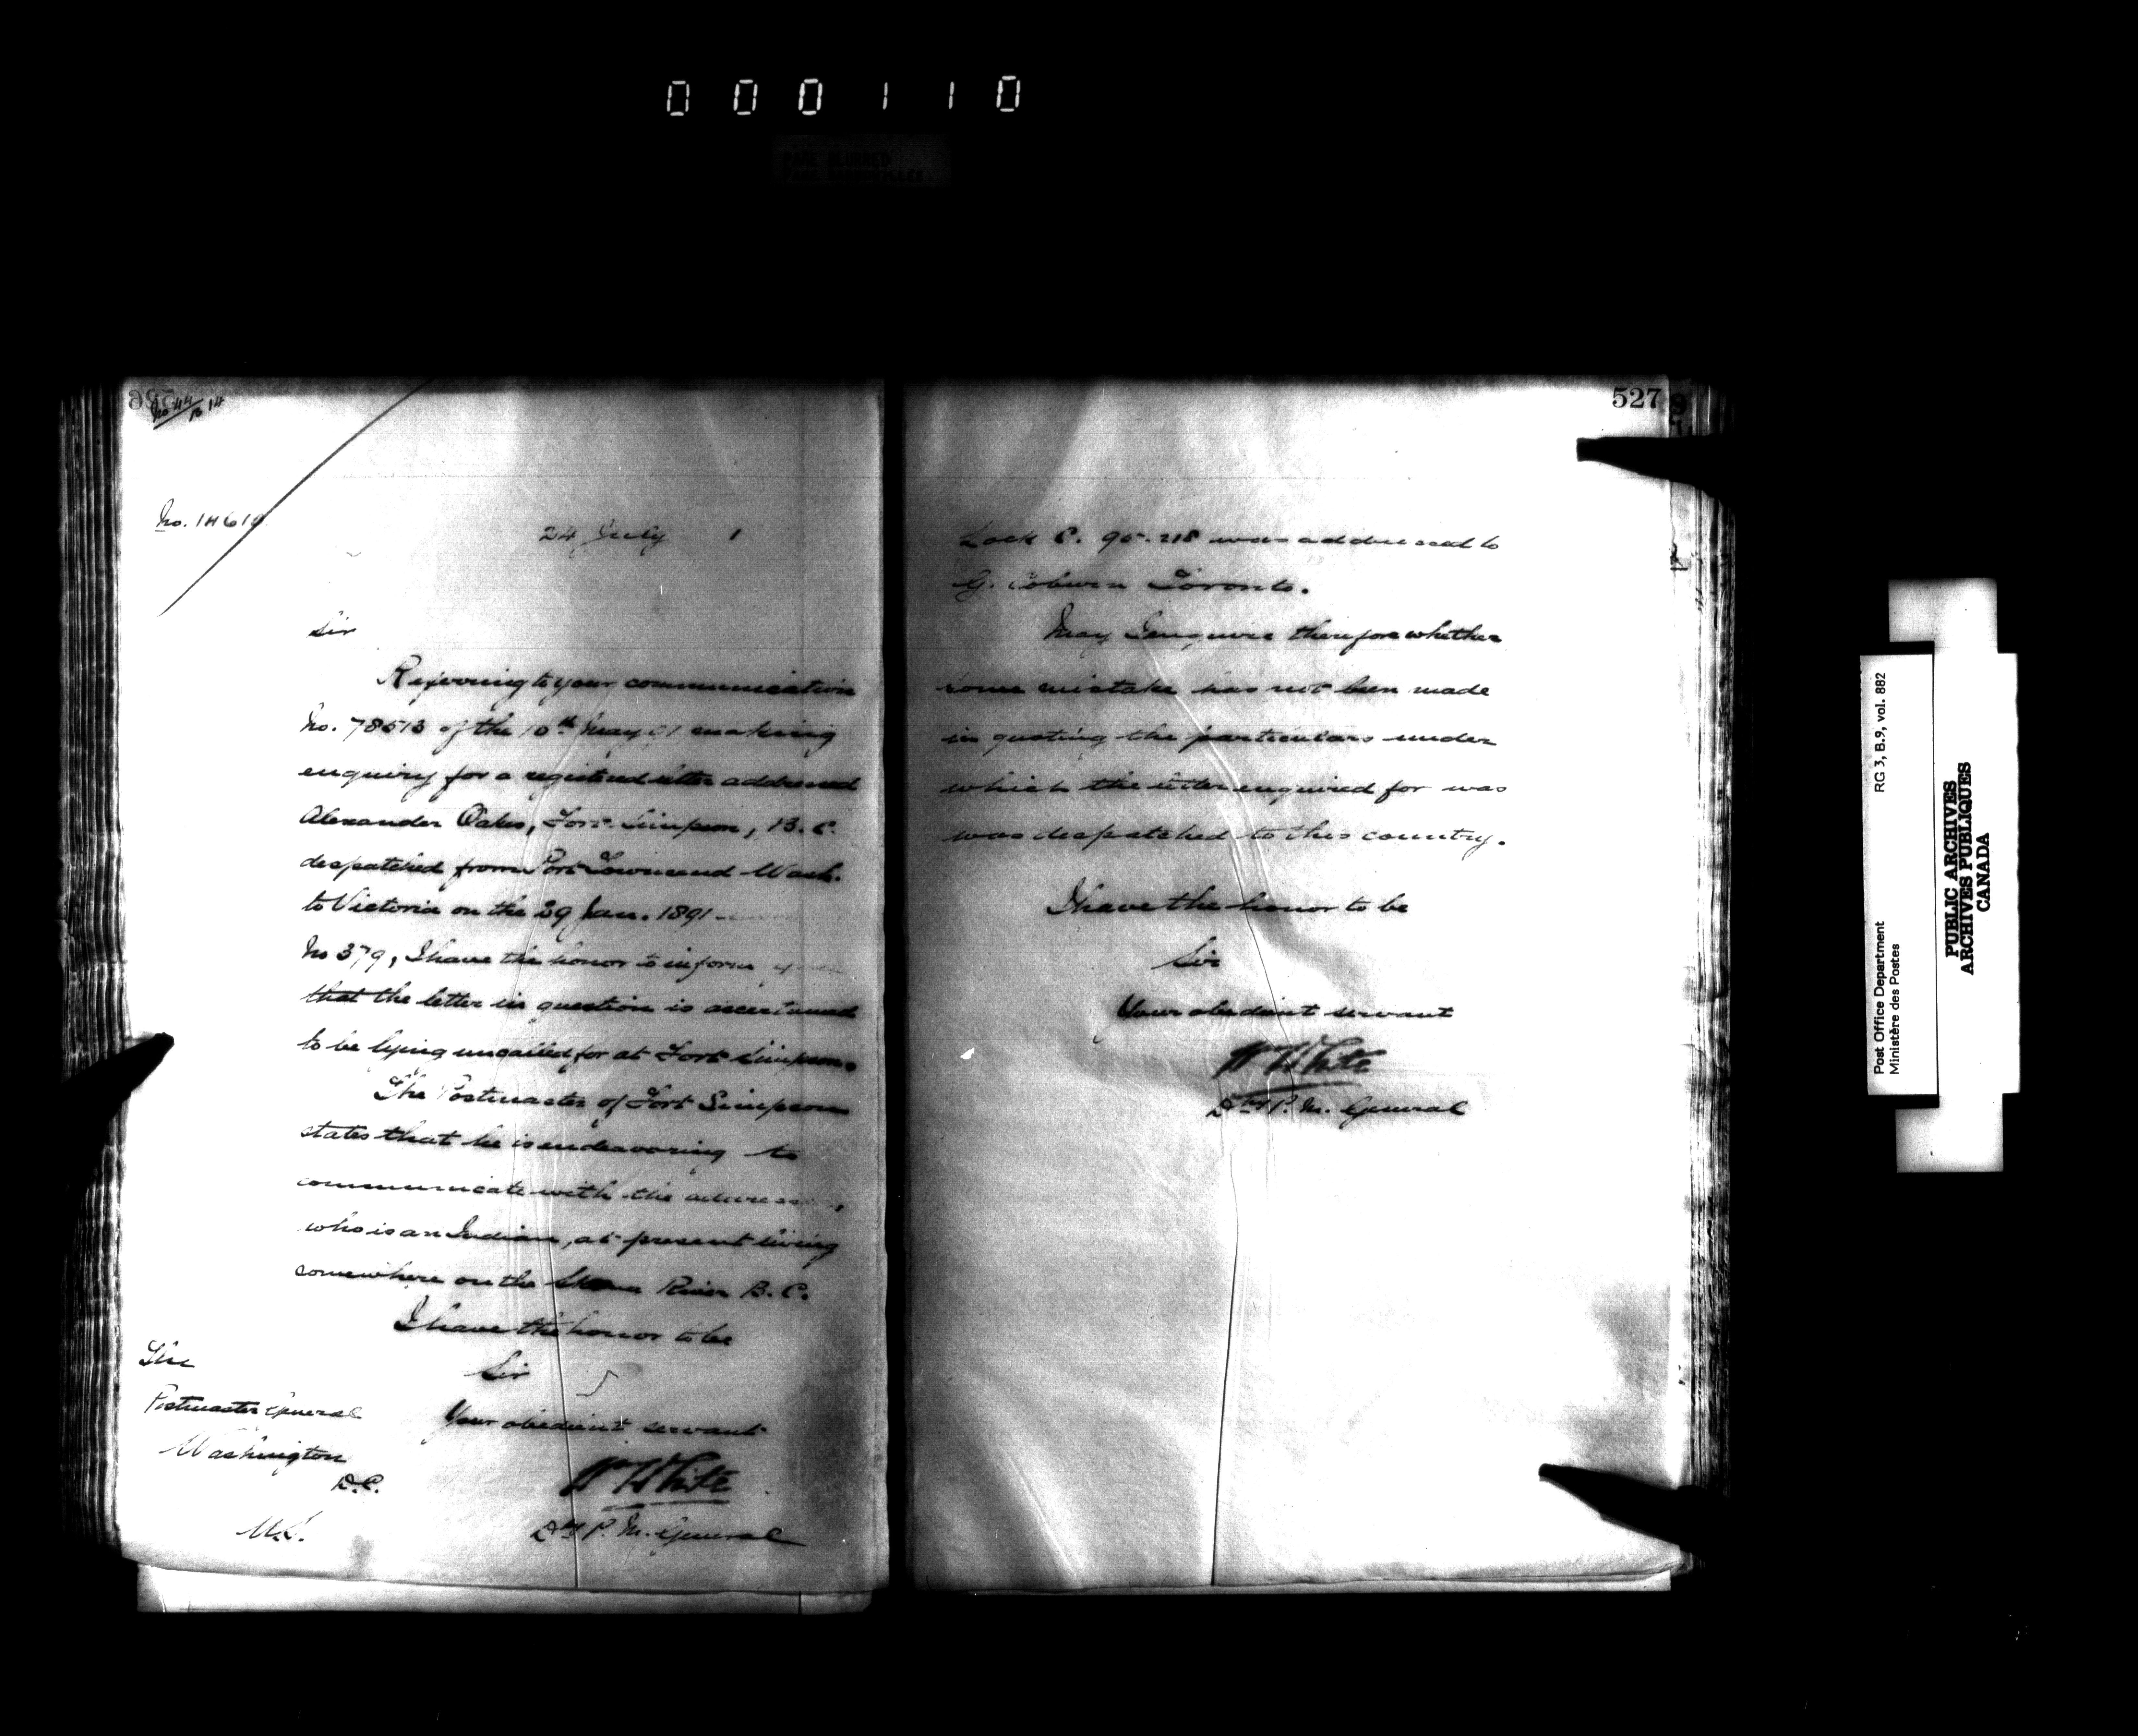 000110
No 44
B 14
No. 14614
24 July 1
Sir
Referring to your communication
No. 78513 of the 10th May 91 making
enquiry for a registered letter addressed
Alexander Oakes, Fort Simpson, B.C.
despatched from Port Townsend Wash.
to Victoria on the 29 Jan. 1891
No 379, I have the honor to inform you
that the letter in question is ascertained
to be lying uncalled for at Fort Simpson.
The Postmaster of Fort Simpson
states that he is endeavoring to
communicate with the addressee,
who is an Indian, at present living
somewhere on the Skeena River B.C.
I have the honor to be
Sir
Your obedient servant
W White
Dty P. M. General
The
Postmaster General
Washington
D.C.
U.S.
527
Lock C. 95.218 was addressed to
G. Coburn Toronto.
May I enquire therefore whether
some mistake has not been made
in quoting the particulars under
which the letter enquired for was
was despatched to this country.
I have the honor to be
Sir
Your obedient servant
W White
Dty P. M. General
Post Office Department
Ministère des Postes
RG 3, B.9, vol. 882
PUBLIC ARCHIVES
ARCHIVES PUBLIQUES
CANADA